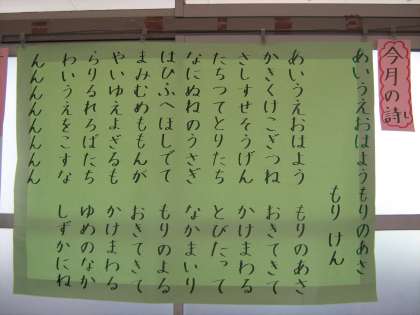 今月の詩
あいうえおはようもりのあさ
もり けん
あいうえおはよう もりのあさ
かきくけこぎつね おきてきて
さしすせそうげん かけまわる
たちつてとりたち とびたって
なにぬねのうさぎ なかまいり
はひふへほしでて もりのよる
まみむめももんが おきてきて
やいゆえよざるも かけまわる
らりるれろばたち ゆめのなか
わいうえをこすな しずかにね
んんんんんんんん